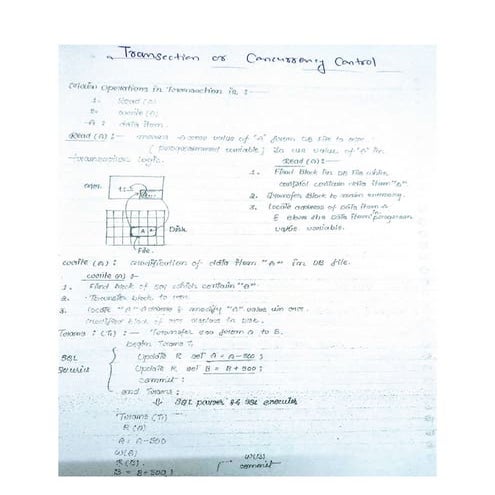 Transection or Concurrency Control
Main Operations in Transaction is :-
1. Read (A)
2. write (A)
A : data item
Read (A) :- means Access value of "A" from DB file to
( programmed variable) value of "A" in
transaction logic.
Read (A) :-
1. Find Block in DB file which
contain data item "A".
2. Transfer Block to main memory.
3. locate address of data item A
& store the Data item in program
value variable.
Disk
File
write (A) : modification of data item "A" in DB file.
write (A) :-
1. Find block of which contain "A"
2. Transfer block to
3. locate "A" Address & modify "A" value in
Modified block of
Trans : (T1) :- Transfer 500 from A to B.
begin Trans T1
SQL
Update R set A = A-500 ;
Update R set B = B+500 ;
commit ;
end Trans ;
SQL parser SQL executer
Trans (T1)
R (A)
A = A-500
W(A)
R (B).
B = B+500 ;
W(B)
commit